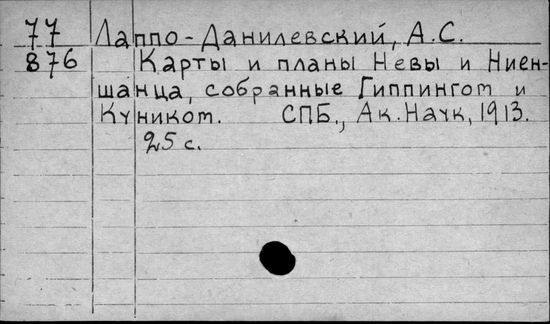 77 Лаппо-Данилевский, А.С.
876 Карты и планы Невы и Ниен-
шанца, собранные Гиппингом и
Куником. СПБ., Ак. Наук, 1913.
25 с.